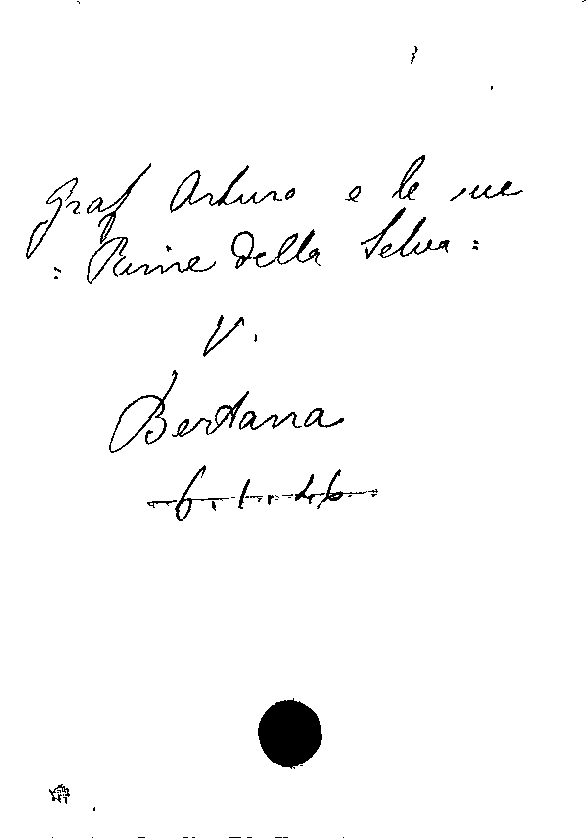 Graf Arturo e le sue
: Rime della Selva :
V.
Bertana
6. 1. 46